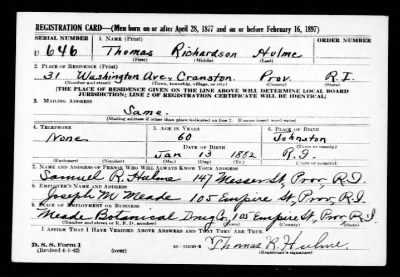 REGISTRATION CARD—(Men born on or after April 28, 1877 and on or before February 16, 1897)
SERIAL NUMBER 1. NAME (Print) ORDER NUMBER
U 646 Thomas Richardson Hulme
(First) (Middle) (Last)
2. PLACE OF RESIDENCE (Print)
31 Washington Ave, Cranston. Prov. R.I.
(Number and street) (Town, township, village, or city) (County) (State)
[THE PLACE OF RESIDENCE GIVEN ON THE LINE ABOVE WILL DETERMINE LOCAL BOARD
JURISDICTION; LINE 2 OF REGISTRATION CERTIFICATE WILL BE IDENTICAL]
3. MAILING ADDRESS
Same.
(Mailing address if other than place indicated on line 2. If same insert word same)
4. TELEPHONE 5. AGE IN YEARS 6. PLACE OF BIRTH
None 60 Johnston
DATE OF BIRTH (Town or county)
Jan 13 1882 R.I.
(Exchange) (Number) (Mo.) (Day) (Yr.) (State or country)
7. NAME AND ADDRESS OF PERSON WHO WILL ALWAYS KNOW YOUR ADDRESS
Samuel R. Hulme 147 Messer St, Prov, R.I.
8. EMPLOYER'S NAME AND ADDRESS
Joseph M Meade 105 Empire St, Prov, R.I.
9. PLACE OF EMPLOYMENT OR BUSINESS
Meade Botanical Drug Co, 105 Empire St, Prov R.I.
(Number and street or R. F. D. number) (Town) (County) (State)
I AFFIRM THAT I HAVE VERIFIED ABOVE ANSWERS AND THAT THEY ARE TRUE.
D. S. S. Form 1 Thomas R. Hulme
(Revised 4-1-42) (over) (Registrant's signature)